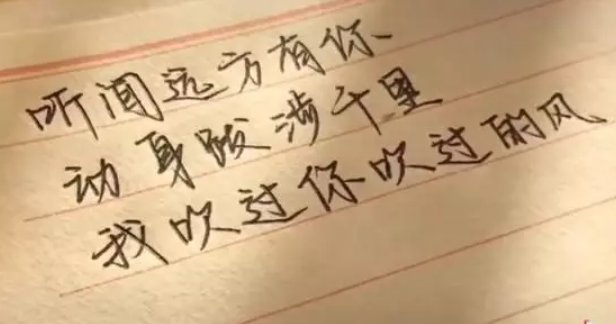 听闻远方有你
动身跋涉千里
我吹过你吹过的风